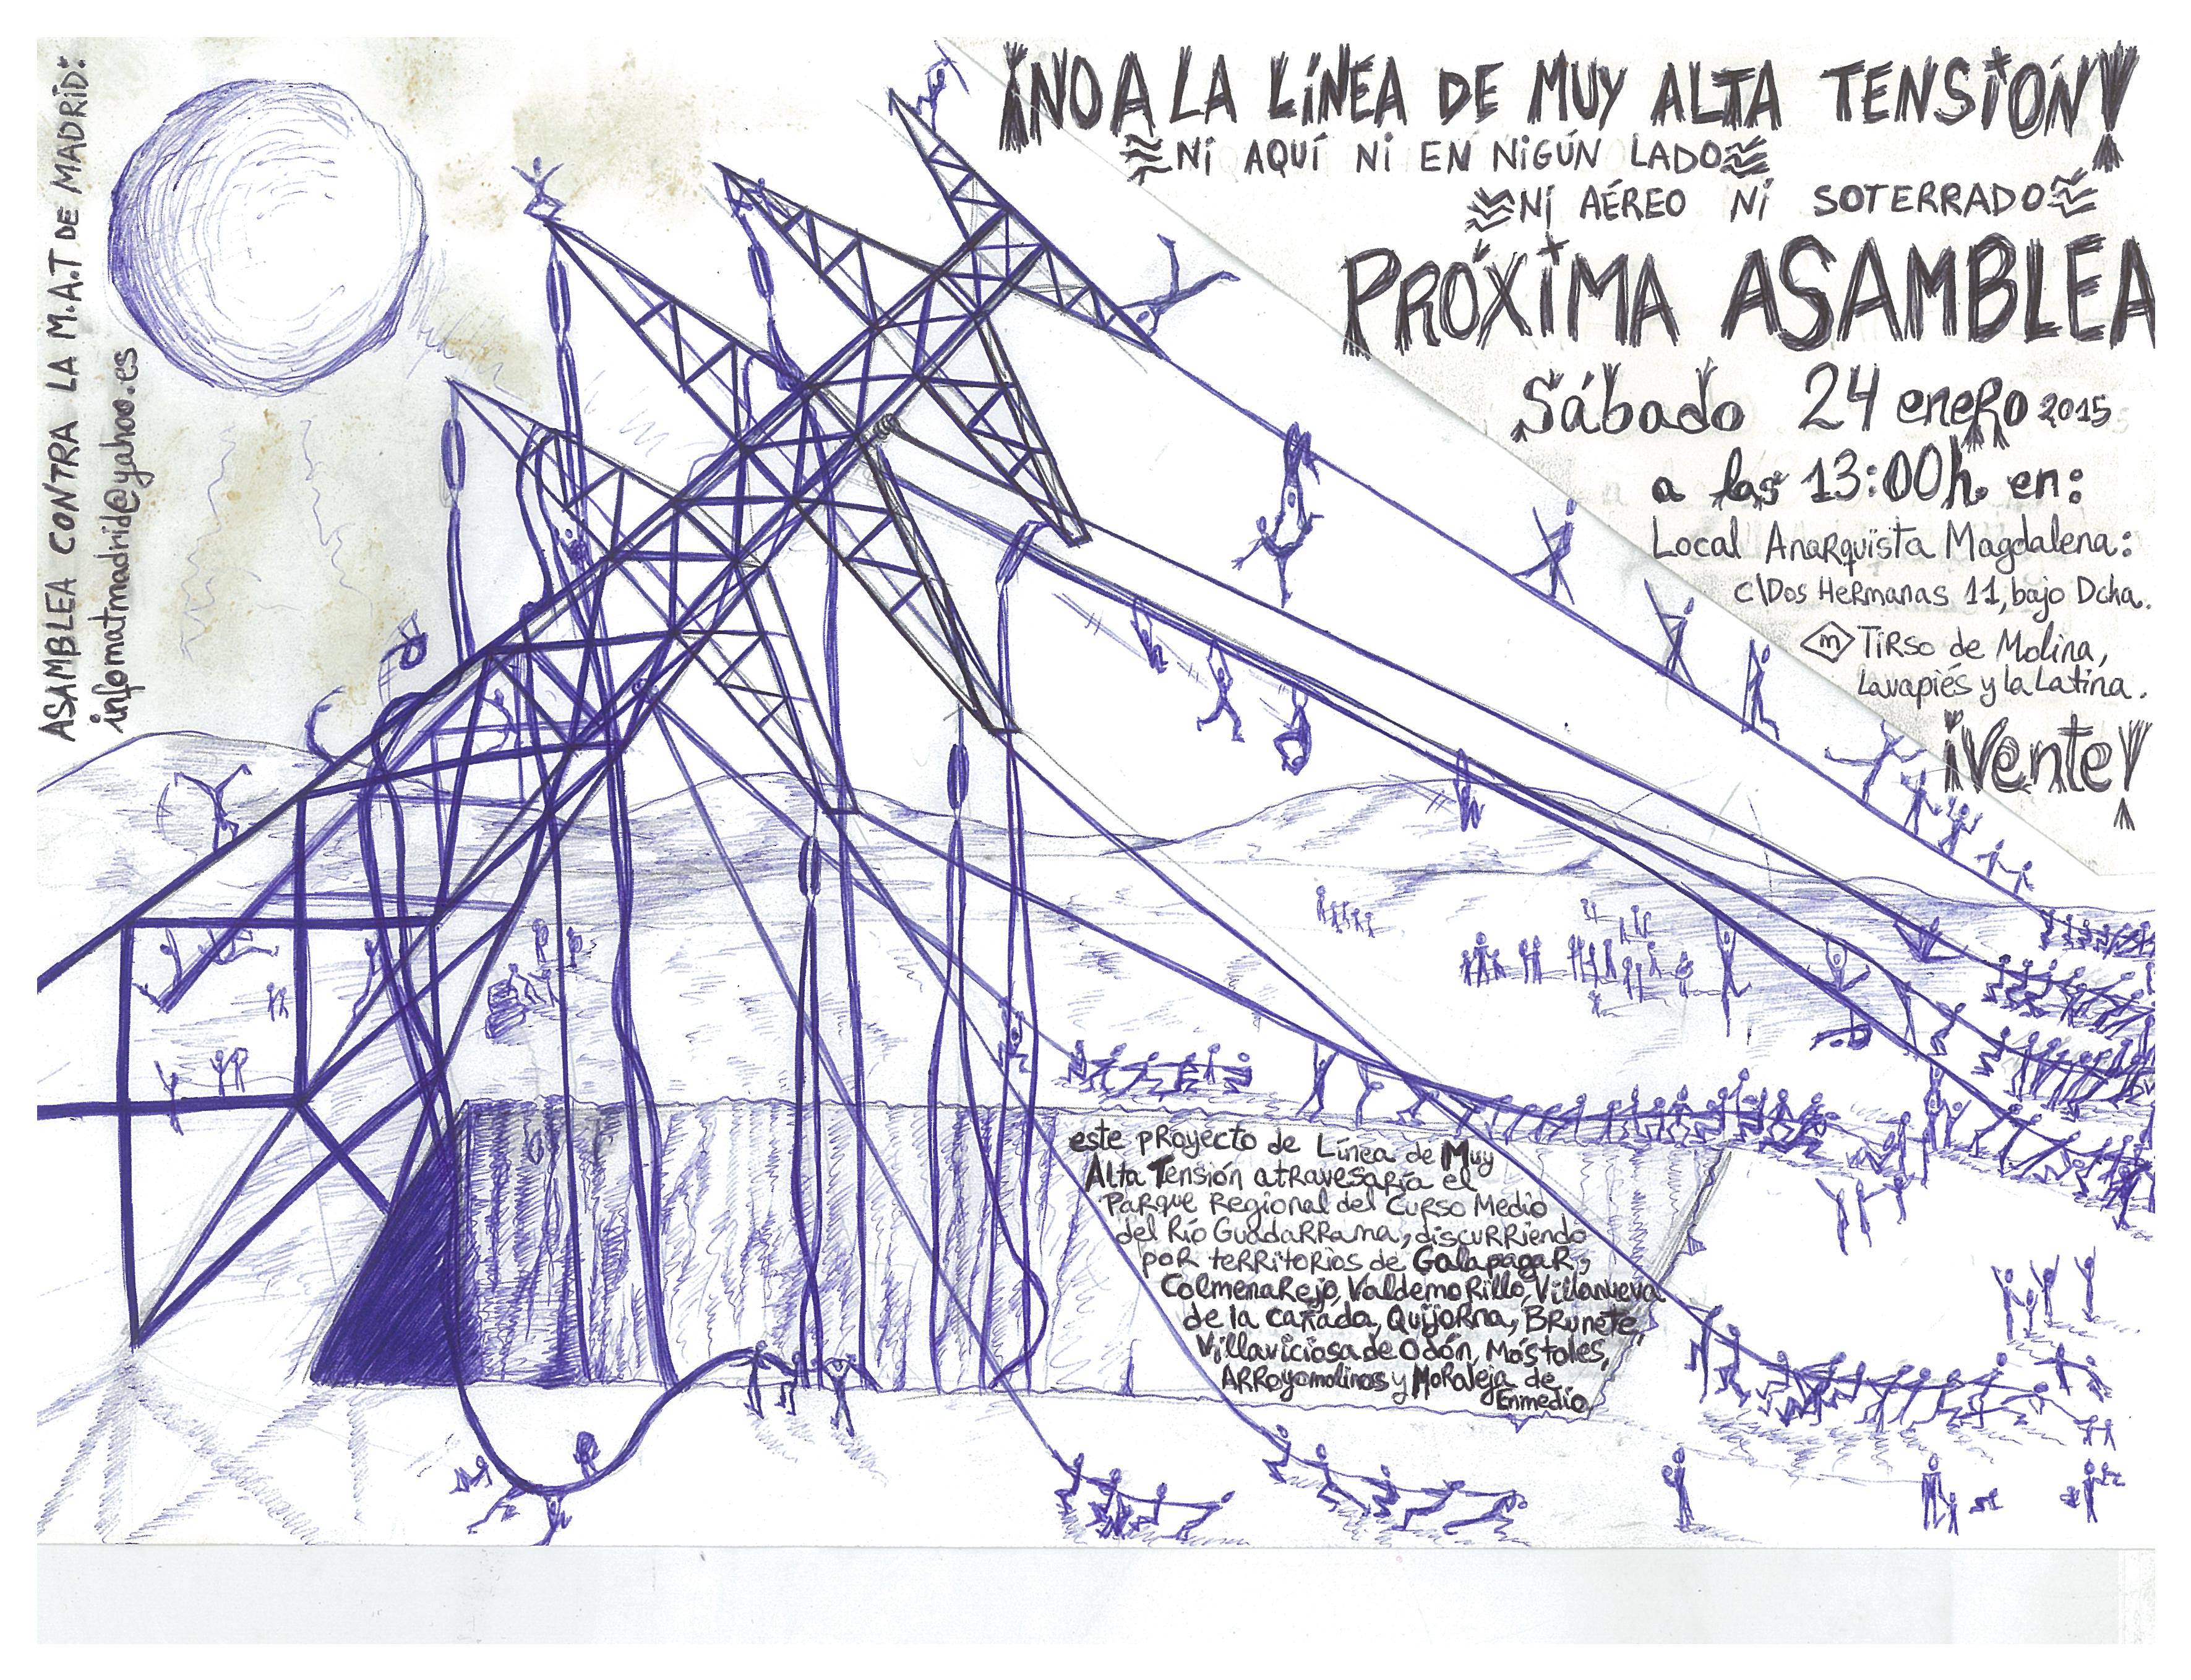 ¡NO A LA LÍNEA DE MUY ALTA TENSIÓN!
NI AQUÍ NI EN NIGÚN LADO
NI AÉREO NI SOTERRADO
PRÓXIMA ASAMBLEA
Sábado 24 enero 2015
a las 13:00h. en:
Local Anarquista Magdalena:
c\Dos Hermanas 11, bajo Dcha.
m Tirso de Molina,
Lavapiés y la Latina.
¡Vente!
ASAMBLEA CONTRA LA M.A.T DE MADRID:
infomatmadrid@yahoo.es
este proyecto de Línea de Muy
Alta Tensión atravesaría el
Parque Regional del Curso Medio
del Río Guadarrama, discurriendo
por territorios de Galapagar,
Colmenarejo, Valdemorillo, Villanueva
de la cañada, Quijorna, Brunete,
Villaviciosa de Odón, Móstoles,
Arroyomolinos y Moraleja de
Enmedio.